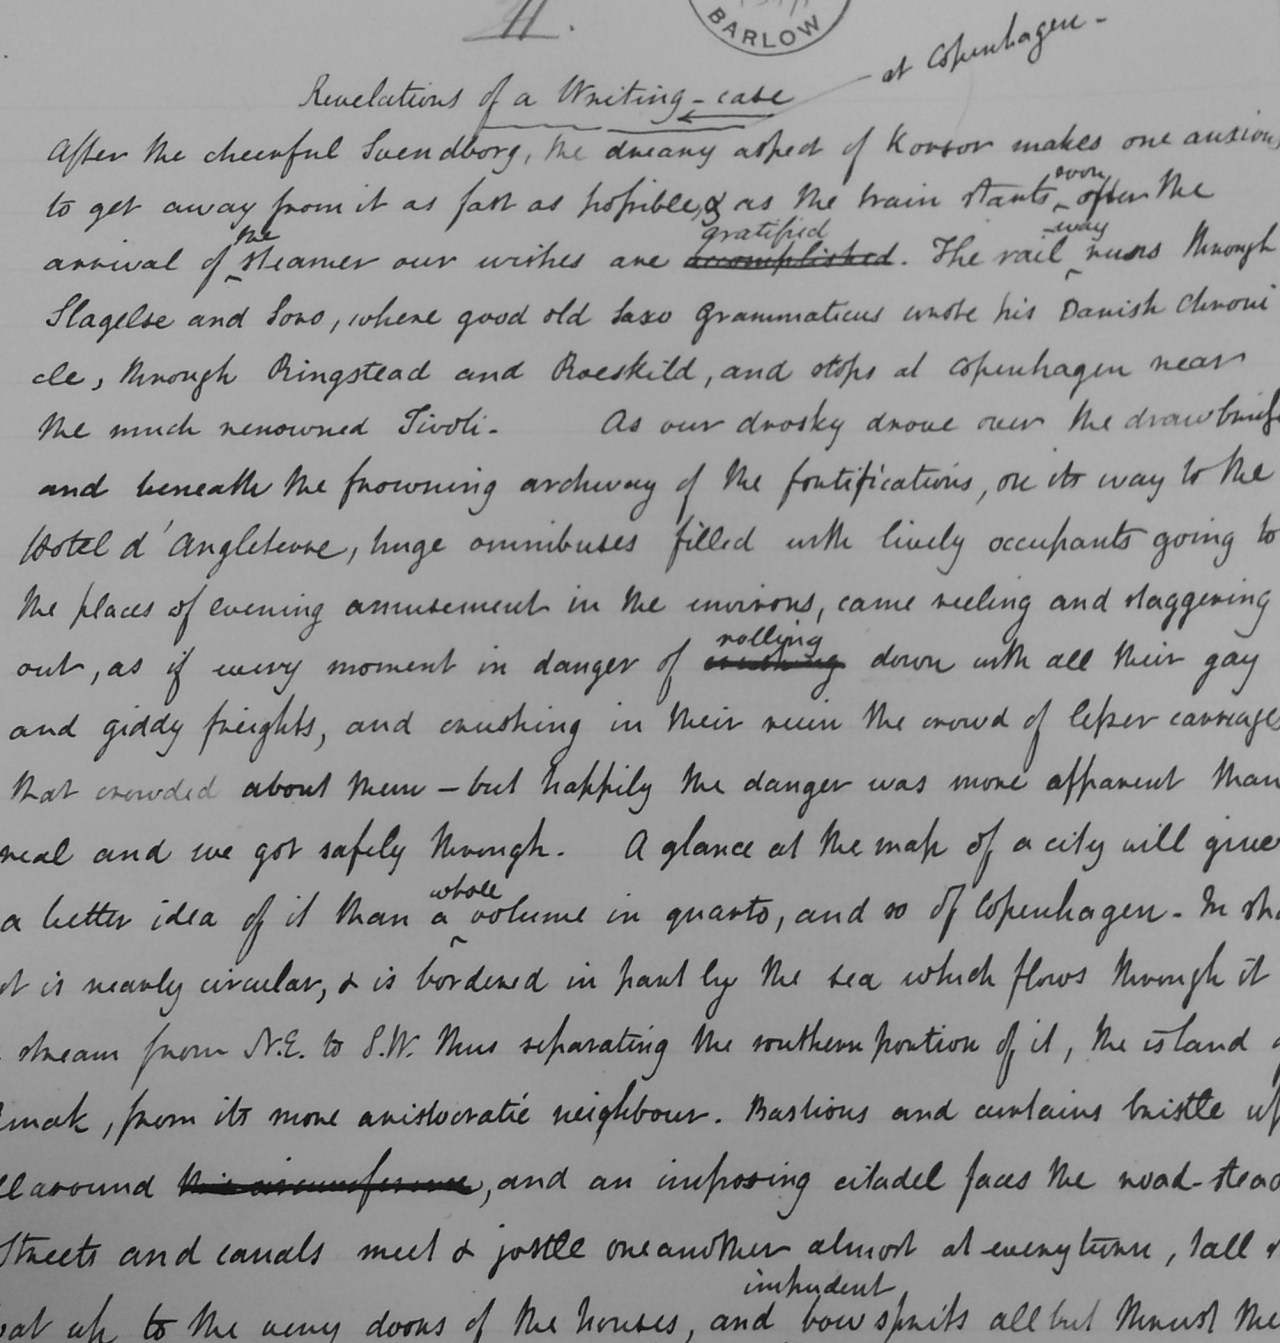 II.
BARLOW
at Copenhagen -
Revelations of a Writing-case
After the cheerful Svendborg, the dreary aspect of Korsor makes one anxious
to get away from it as fast as possible, & as the train starts soon after the
arrival of the steamer our wishes are accomplished gratified. The railway runs through
Slagelse and Soro, where good old Saxo Grammaticus wrote his Danish Chroni
cle, through Ringstead and Roeskild, and stops at Copenhagen near
the much renowned Tivoli - As our drosky drove over the drawbridge
and beneath the frowning archway of the fortifications, on its way to the
Hotel d'Angleterre, huge omnibuses filled with lively occupants going to
the places of evening amusement in the environs, came reeling and staggering
out, as if every moment in danger of crushing rolling down with all their gay
and giddy freights, and crushing in their ruin the crowd of lesser carriages
that crowded about them - but happily the danger was more apparent than
real and we got safely through. A glance at the map of a city will give
a better idea of it than a whole volume in quarto, and so of Copenhagen - In sha
it is nearly circular, & is bordered in part by the sea which flows through it
stream from N.E. to S.W. thus separating the southern portion of it, the island
mak, from its more aristocratic neighbour. Bastions and curtains bristle up
all around this circumference, and an imposing citadel faces the road-stead
Streets and canals meet & jostle one another almost at every turn, tall
up to the very doors of the houses, and impudent bowsprits all but thrust the